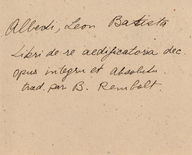 Alberti, Leon Batista
Libri de re aedificatoria dec.
opus integru et absolutu.
trad. par B. Rembolt.